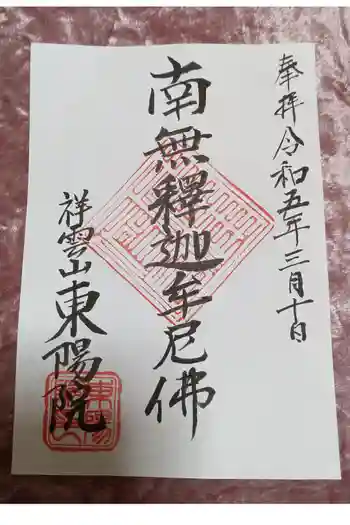 奉拝令和五年三月十日
南無釋迦牟尼佛
祥雲山東陽院